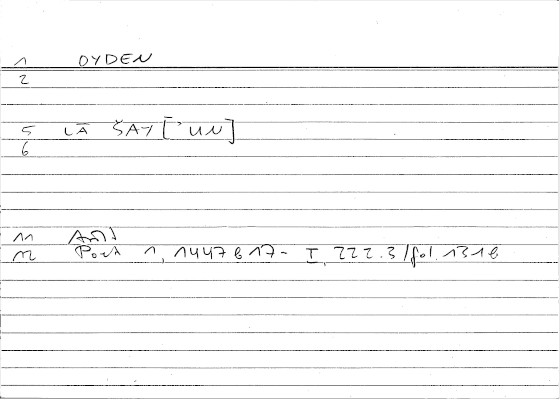 1 OYDEN
2
5 LĀ ŠAY[ʾUN]
6
11
12 1, 1447b17- I, 222.3/fol. 131b